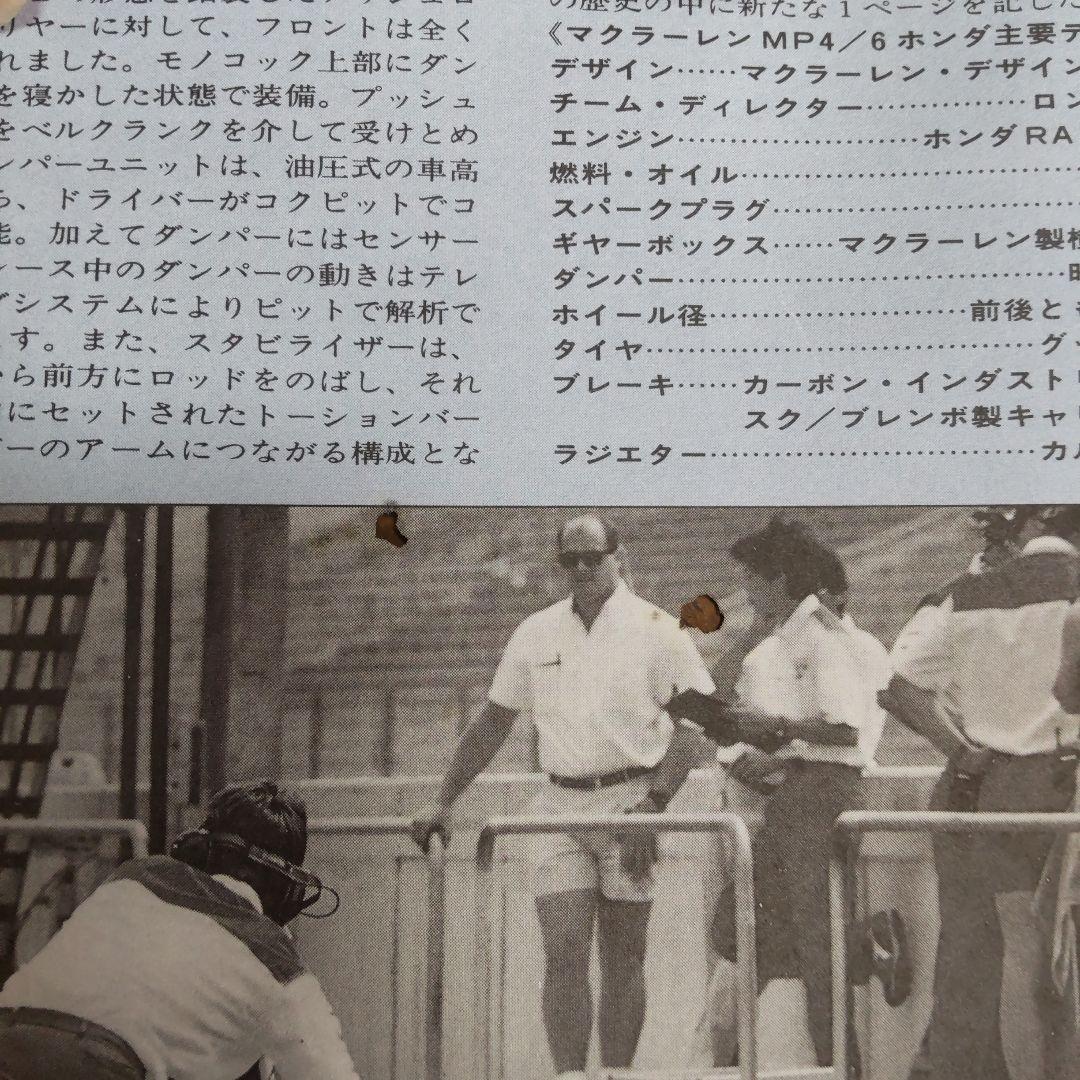 リヤーに対して、フロントは全く
れました。モノコック上部にダン
を寝かした状態で装備。プッシュ
をベルクランクを介して受けとめ
ンパーユニットは、油圧式の車高
ら、ドライバーがコクピットでコ
能。加えてダンパーにはセンサー
レース中のダンパーの動きはテレ
グシステムによりピットで解析で
す。また、スタビライザーは、
から前方にロッドをのばし、それ
にセットされたトーションバー
ーのアームにつながる構成とな
の歴史の中に新たな1ページを記した
《マクラーレンMP4/6ホンダ主要デ
デザイン……マクラーレン・デザイン
チーム・ディレクター……………ロン
エンジン……………………ホンダRA
燃料・オイル………………………………
スパークプラグ……………………………
ギヤーボックス……マクラーレン製横
ダンパー……………………………………
ホイール径………………………前後とも
タイヤ…………………………………グッ
ブレーキ……カーボン・インダストリ
スク/ブレンボ製キャリ
ラジエター……………………………カル